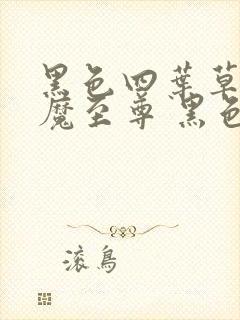 黑色四葉草
魔至尊 黑色
滾鳥